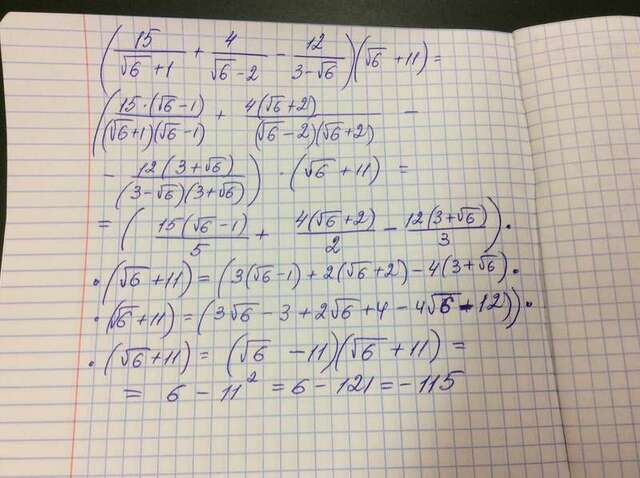 (15/(√6+1) + 4/(√6-2) - 12/(3-√6))(√6+11)=
((15·(√6-1))/((√6+1)(√6-1)) + (4(√6+2))/((√6-2)(√6+2)) -
- (12(3+√6))/((3-√6)(3+√6))) · (√6+11) =
= ((15(√6-1))/5 + (4(√6+2))/2 - (12(3+√6))/3)·
·(√6+11) = (3(√6-1)+2(√6+2)-4(3+√6)·
·(√6+11) = (3√6-3+2√6+4-4√6-12))·
·(√6+11) = (√6 -11)(√6+11) =
= 6-11² = 6-121 = -115